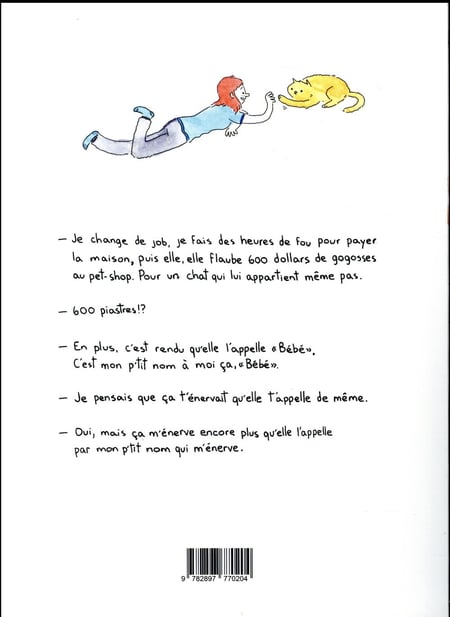 – Je change de job, je fais des heures de fou pour payer
la maison, puis elle, elle flaube 600 dollars de gogosses
au pet-shop. Pour un chat qui lui appartient même pas.
– 600 piastres!?
– En plus, c'est rendu qu'elle l'appelle «Bébé».
C'est mon p'tit nom à moi ça, «Bébé».
– Je pensais que ça t'énervait qu'elle t'appelle de même.
– Oui, mais ça m'énerve encore plus qu'elle l'appelle
par mon p'tit nom qui m'énerve.
9 782897 770204